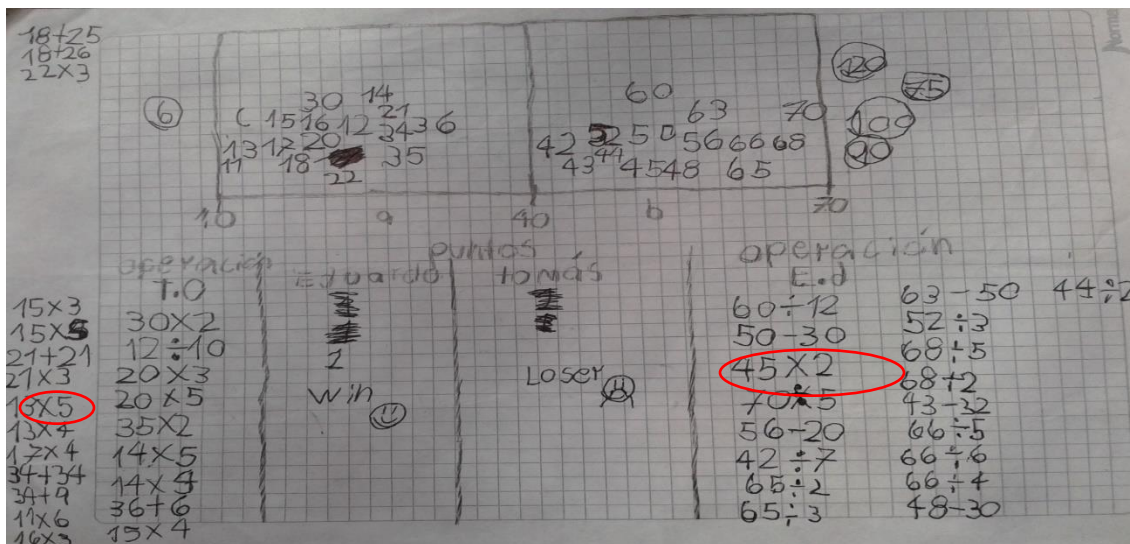 18+25
18+26
22×3
120
75
100
90
6
30 14
21
15 16 12 34 36
13 17 20
11 18 35
22
60
63 70
42 52 50 56 66 68
43 44 45 48 65
10 a 40 b 70
operación Eduardo puntos tomás operación
T.O E.d
15×3
15×5
21+21
21×3
13×5
13×4
17×4
34+34
34+9
11×6
16×3
30×2
12÷10
20×3
20×5
35×2
14×5
14×4
36+6
15×4
1
Win
Loser
60÷12
50-30
45×2
70÷5
56-20
42÷7
65÷2
65÷3
63-50
52÷3
68÷5
68÷2
43-32
66÷5
66÷6
66÷4
48-30
44÷2
Norma